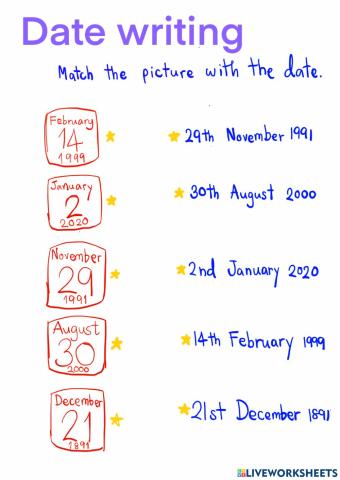 Date writing
Match the picture with the date.
February
14
1999
29th November 1991
January
2
2020
30th August 2000
November
29
1991
2nd January 2020
August
30
2000
14th February 1999
December
21
1891
21st December 1891
LIVEWORKSHEETS